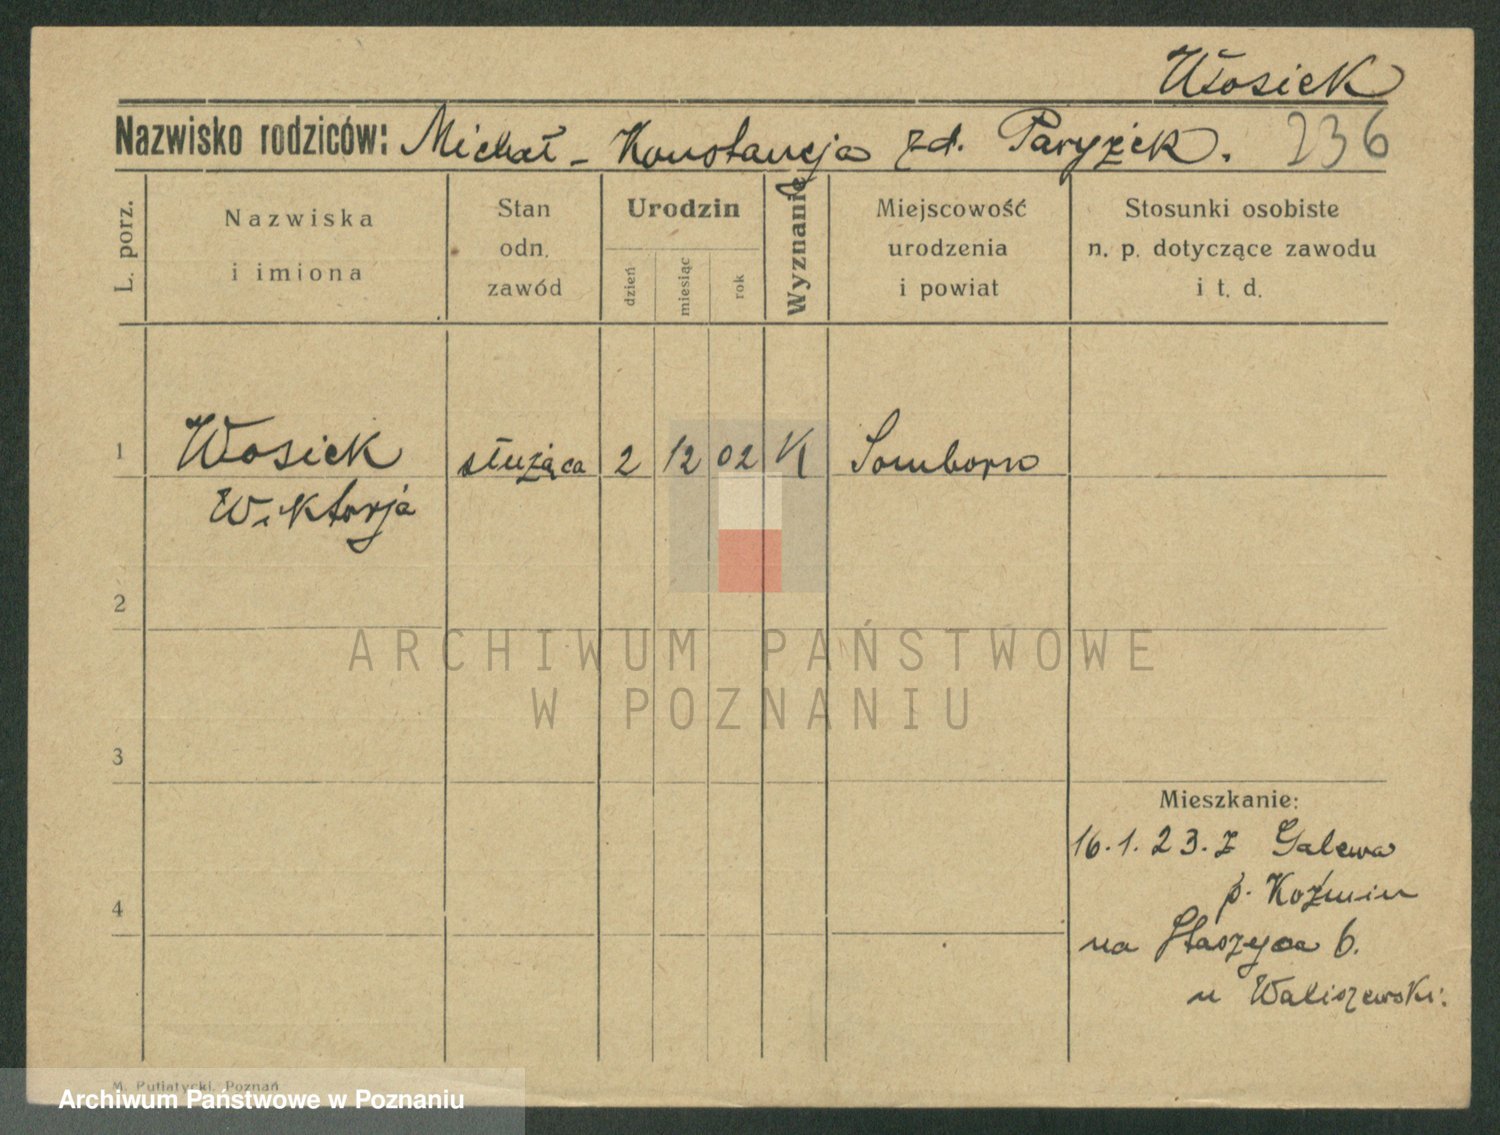 Włosiek
Nazwisko rodziców: Michał - Konstancja zd. Paryżek. 236
L. porz.
Nazwiska
i imiona
Stan
odn.
zawód
Urodzin
dzień
miesiąc
rok
Wyznanie
Miejscowość
urodzenia
i powiat
Stosunki osobiste
n. p. dotyczące zawodu
i t. d.
1 Wosiek służąca 2 12 02 K Somborn
Wiktorja
2
ARCHIWUM PAŃSTWOWE
W POZNANIU
3
Mieszkanie:
16.1.23. z Galewa
p. Koźmin
4
na Staszyca 6.
u Waliszewski.
M. Putiatycki, Poznań
Archiwum Państwowe w Poznaniu